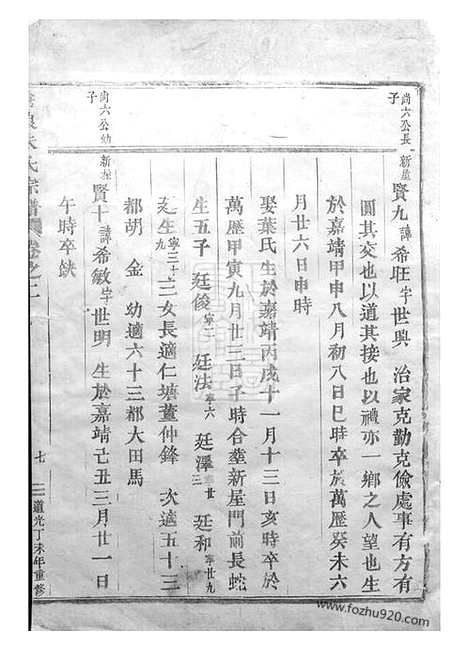 尚六公長子
新屋
賢九諱希旺字世興 治家克勤克儉處事有方有
圓其交也以道其接也以禮亦一鄉之人望也生
於嘉靖甲申八月初八日巳時卒於萬歷癸未六
月廿六日申時
娶葉氏生於嘉靖丙戌十一月十三日亥時卒於
萬歷甲寅九月廿三日子時合塟新屋門前長蛇
生五子 廷俊寧二 廷法寧六 廷澤寧廿三 廷和寧廿九
廷生寧三十九 二女長適仁塘董仲鋒 次適五十三
都胡 金 幼適六十三都大田馬
尚六公幼子
新屋
賢十諱希敏字世明 生於嘉靖己丑三月廿一日
午時卒缺
朱氏宗譜 卷之二
七
道光丁未年重修
www.fozhu920.com